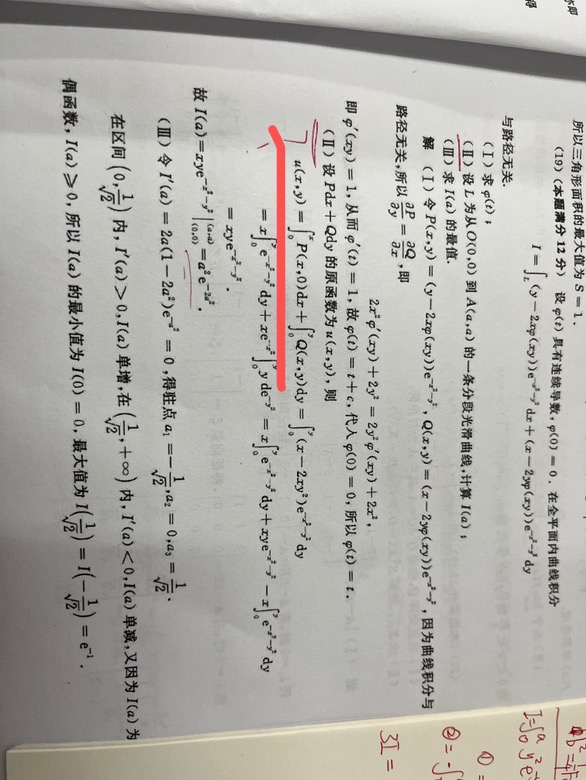 所以三角形面积的最大值为 S = 1.
(19) (本题满分 12 分) 设 φ(t) 具有连续导数, φ(0) = 0. 在全平面内曲线积分
I = ∫_L (y − 2xφ(xy))e^{−x²−y²}dx + (x − 2yφ(xy))e^{−x²−y²}dy
与路径无关.
(Ⅰ) 求 φ(t);
(Ⅱ) 设 L 为从 O(0,0) 到 A(a,a) 的一条分段光滑曲线, 计算 I(a);
(Ⅲ) 求 I(a) 的最值.
解 (Ⅰ) 令 P(x,y) = (y − 2xφ(xy))e^{−x²−y²}, Q(x,y) = (x − 2yφ(xy))e^{−x²−y²}, 因为曲线积分与
路径无关, 所以 ∂P/∂y = ∂Q/∂x, 即
2x²φ′(xy) + 2y² = 2y²φ′(xy) + 2x²,
即 φ′(xy) = 1, 从而 φ′(t) = 1, 故 φ(t) = t + c, 代入 φ(0) = 0, 所以 φ(t) = t.
(Ⅱ) 设 Pdx + Qdy 的原函数为 u(x,y), 则
u(x,y) = ∫₀ˣ P(x,0)dx + ∫₀ʸ Q(x,y)dy = ∫₀ʸ (x − 2xy²)e^{−x²−y²}dy
= x∫₀ʸ e^{−x²−y²}dy + xe^{−x²}∫₀ʸ y de^{−y²} = x∫₀ʸ e^{−x²−y²}dy + xye^{−x²−y²} − x∫₀ʸ e^{−x²−y²}dy
= xye^{−x²−y²}.
故 I(a) = xye^{−x²−y²}|_{(0,0)}^{(a,a)} = a²e^{−2a²}.
(Ⅲ) 令 I′(a) = 2a(1 − 2a²)e^{−a²} = 0, 得驻点 a₁ = −1/√2, a₂ = 0, a₃ = 1/√2.
在区间 (0, 1/√2) 内, I′(a) > 0, I(a) 单增, 在 (1/√2, +∞) 内, I′(a) < 0, I(a) 单减, 又因为 I(a) 为
偶函数, I(a) ≥ 0, 所以 I(a) 的最小值为 I(0) = 0, 最大值为 I(1/√2) = I(−1/√2) = e⁻¹.
①
② = −∫
3I =